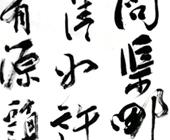 問渠那
清如許
有源頭